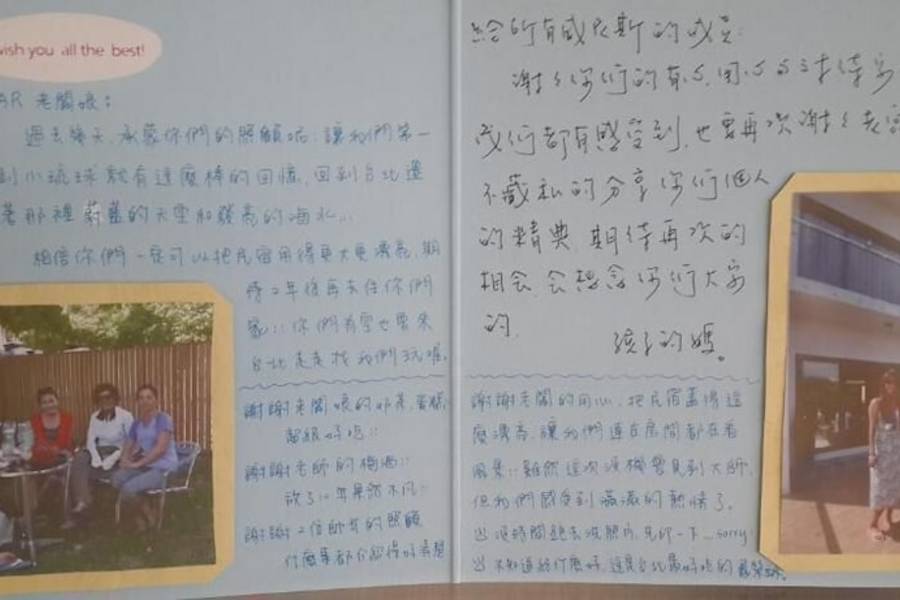 wish you all the best!
老闆娘：
過去幾天,承蒙你們的照顧呢,讓我們第一
到小琉球就有這麼棒的回憶,回到台北還
著那裡蔚藍的天空和發亮的海水...
相信你們一定可以把民宿用得更大更漂亮,期
待2年後再去住你們
家::你們有空也要來
台北走走找我們玩喔,
謝謝老闆娘的奶茶,蛋糕,
超級好吃::
謝謝老師的梅酒::
謝謝2位帥哥的照顧
什麼事都介紹得好清楚
給所有威尼斯的成員:
謝謝你們的有心,用心的對待
我們都有感受到,也要再次謝謝老
不藏私的分享你們個人
的精典,期待再次的
相会,会想念你們大家
的.
孩子的媽。
謝謝老闆的用心,把民宿蓋得這
麼漂亮,讓我們連在房間都在看
風景::雖然這次沒機會見到大師,
但我們感受到滿滿的熱情了。
沒時間趕去洗照片,先印一下...sorry
不知道給什麼好,這是台北最好吃的